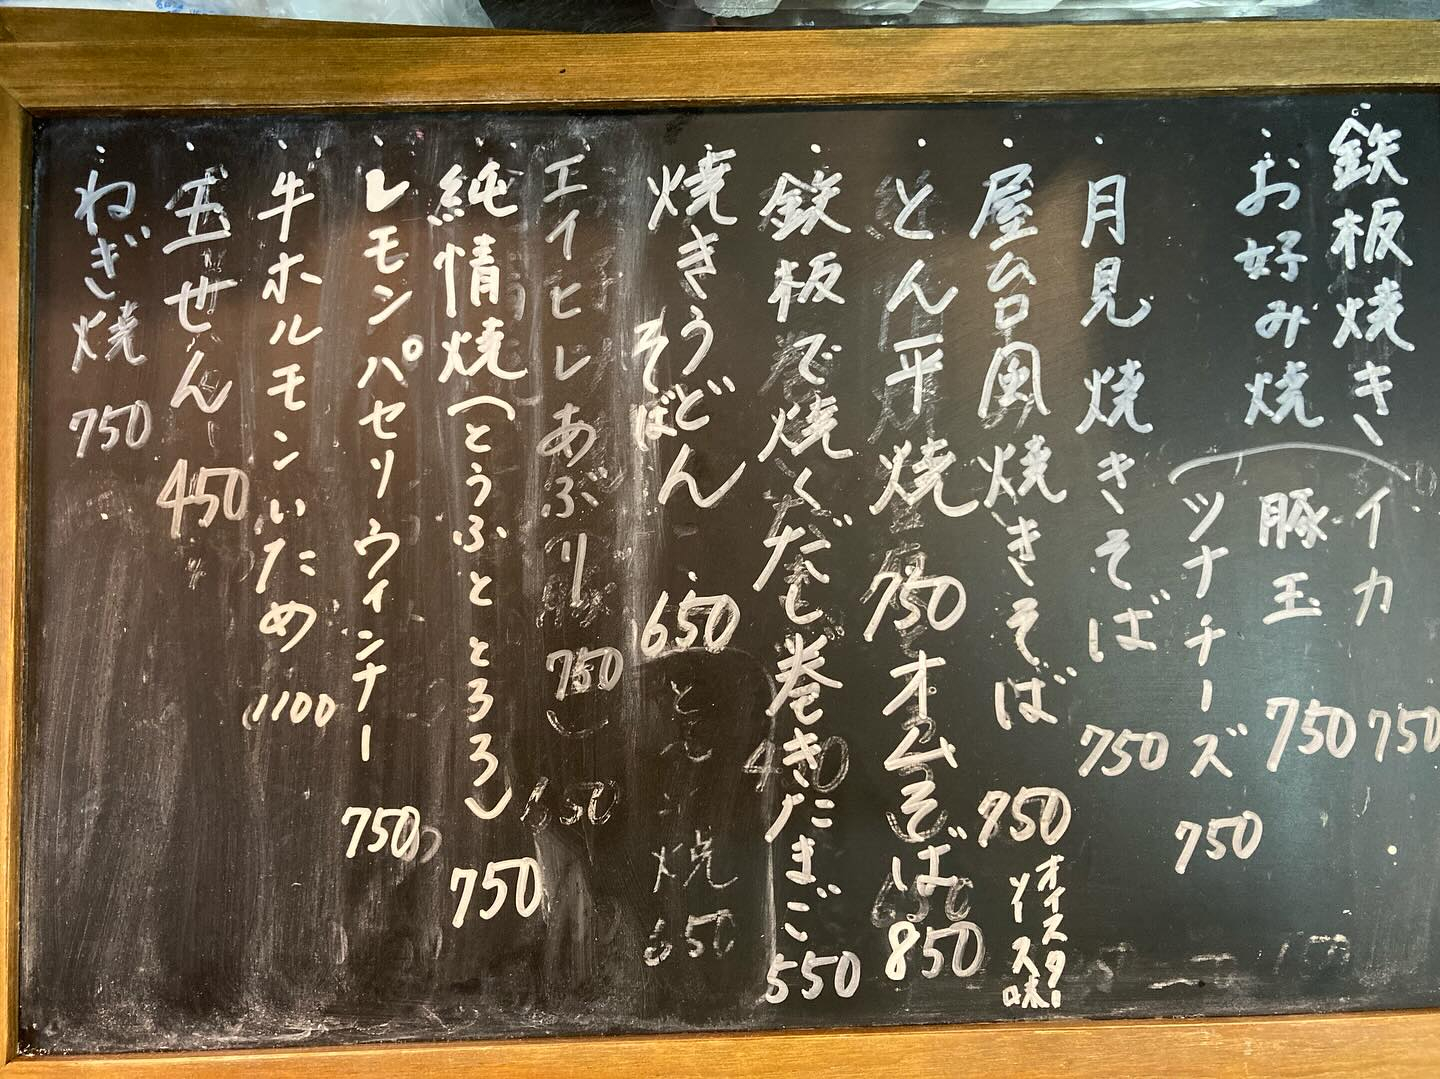 鉄板焼き
お好み焼
イカ 750
豚玉 750
ツナチーズ 750
月見焼きそば 750
屋台風焼きそば 750
オイスター
ソース味
とん平焼 750
オムそば 850
鉄板で焼くだし巻きたまご 550
焼きうどん 650
そば
エイヒレあぶり 750
純情焼(とうふととろろ) 750
レモンパセリウィンナー 750
牛ホルモンいため 1100
玉せん 450
ねぎ焼 750